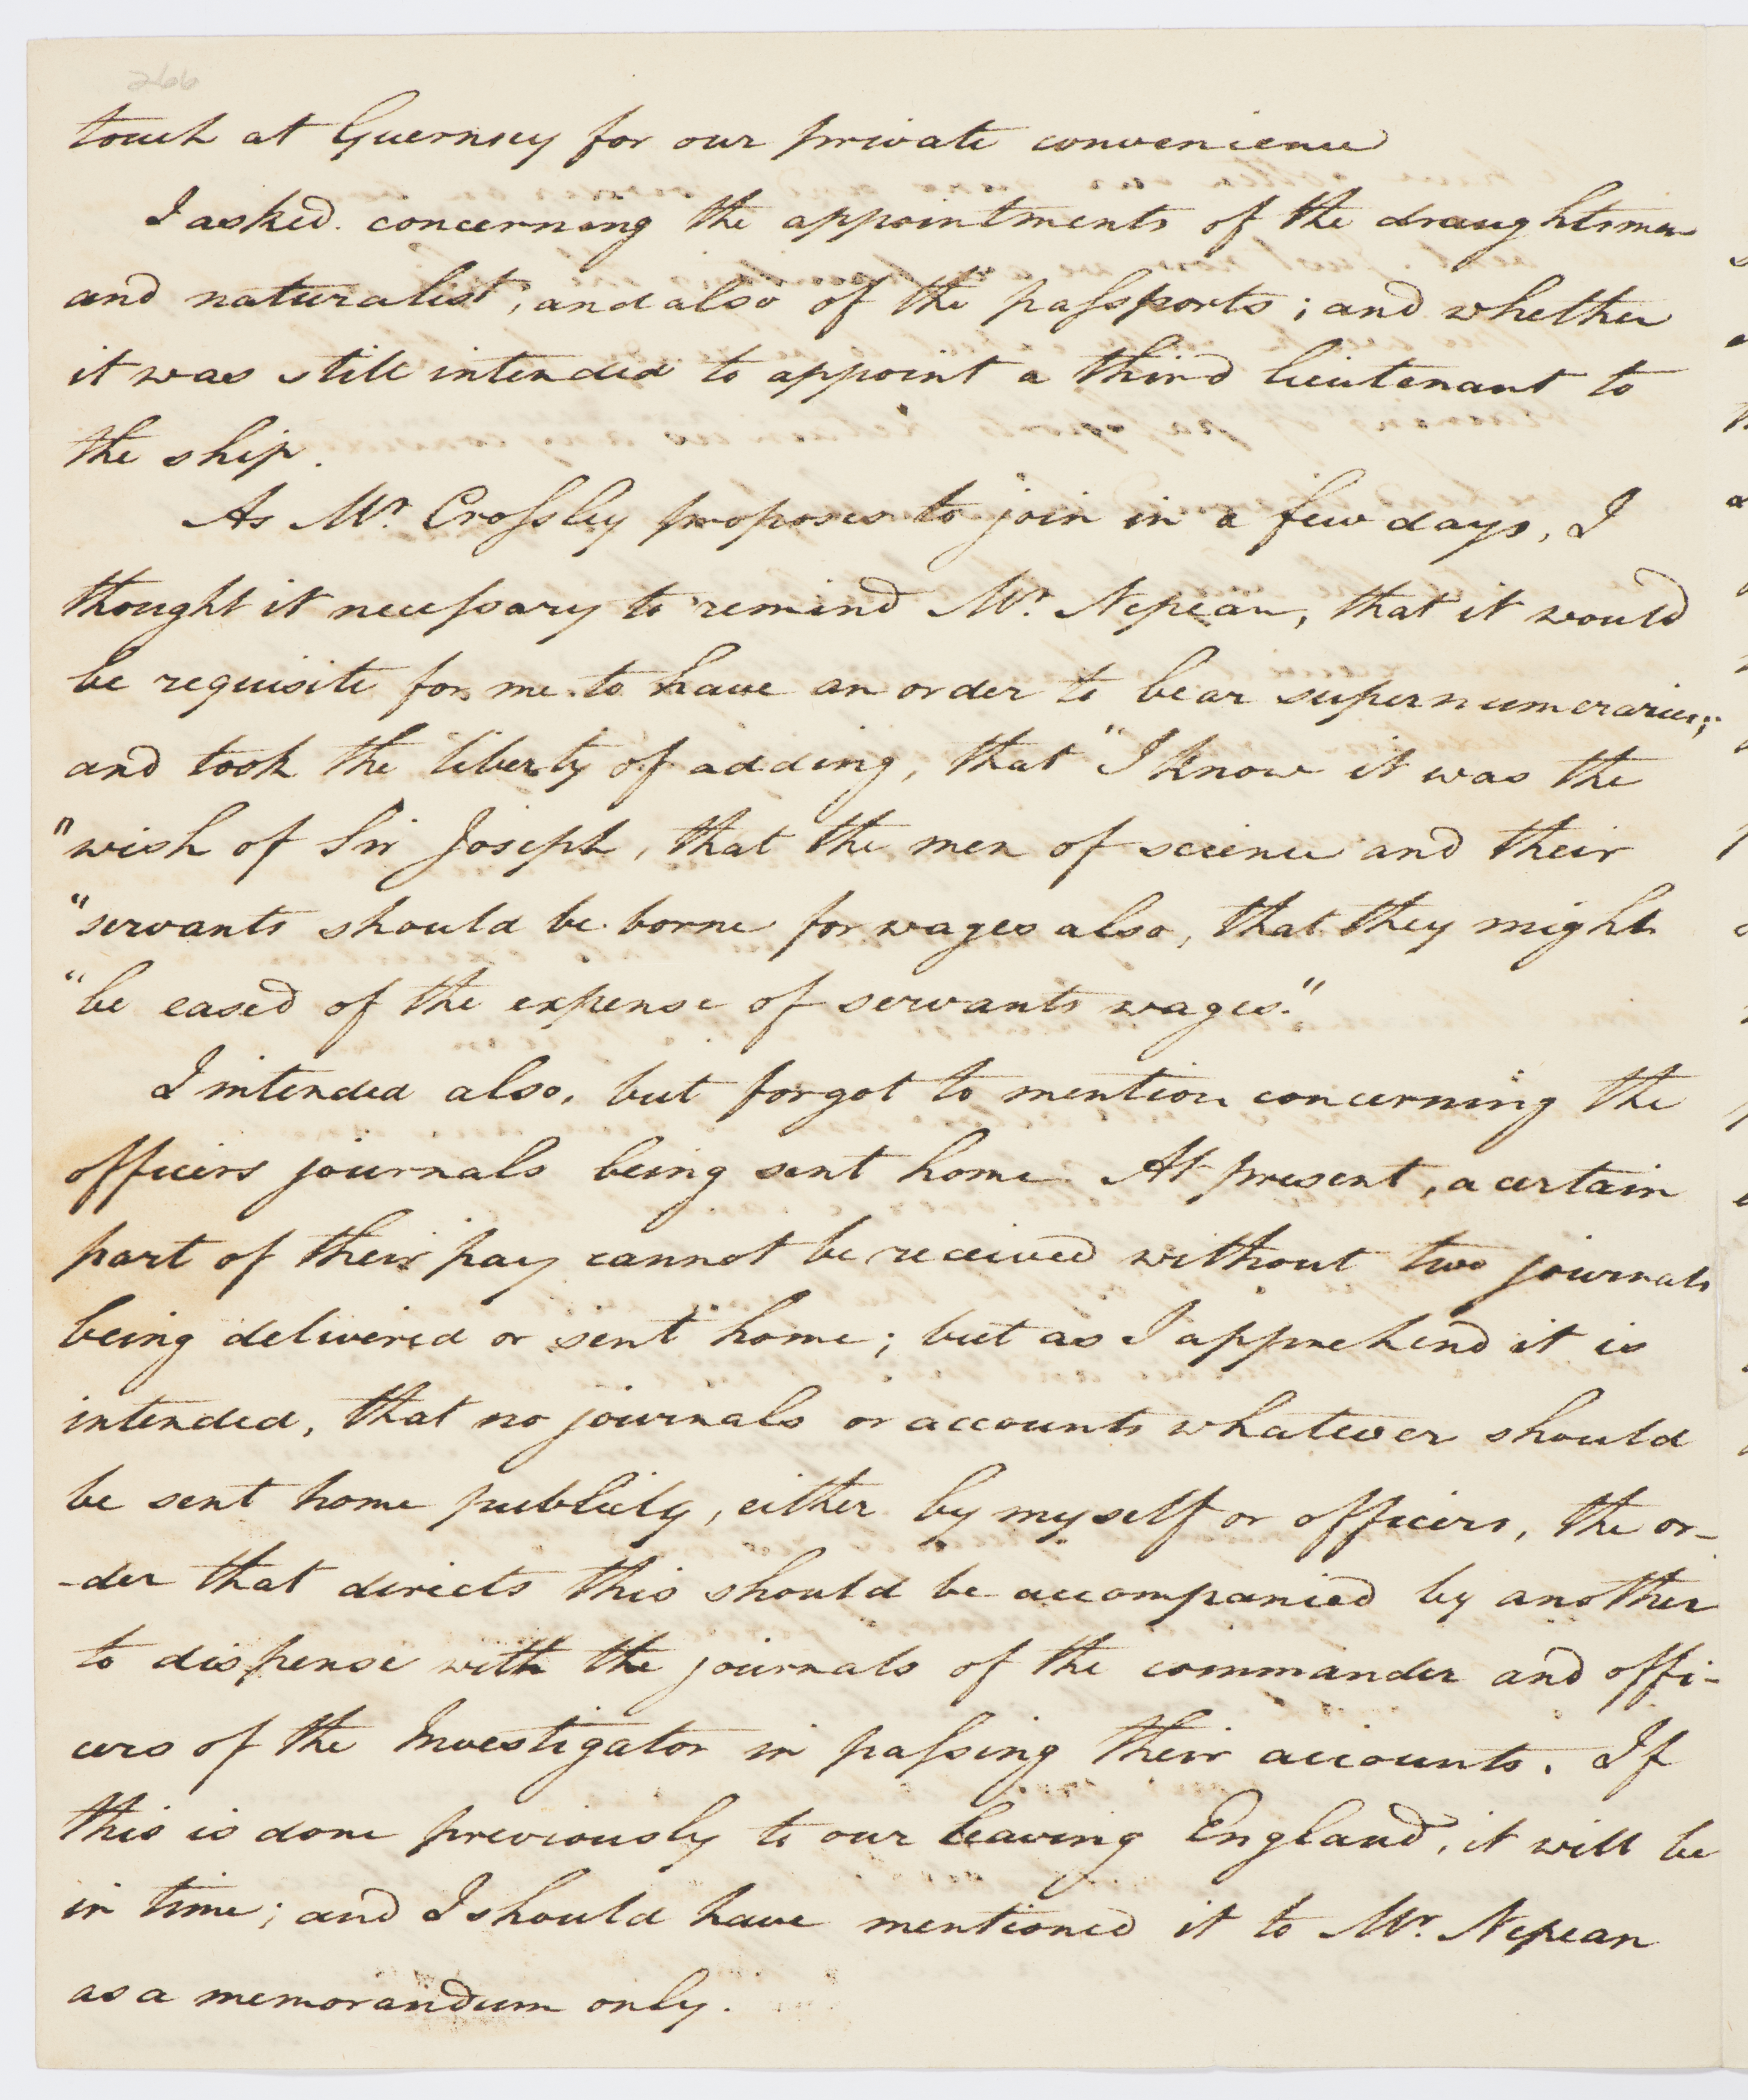 266
touch at Guernsey for our private convenience
I asked concerning the appointments of the draughtsman
and naturalist, and also of the passports; and whether
it was still intended to appoint a third lieutenant to
the ship.
As Mr. Crossley proposes to join in a few days, I
thought it necessary to remind Mr. Nepean, that it would
be requisite for me to have an order to bear supernumeraries;
and took the liberty of adding, that "I know it was the
"wish of Sir Joseph, that the men of science and their
"servants should be borne for wages also, that they might
"be eased of the expense of servants wages."
I intended also, but forgot to mention concerning the
officers journals being sent home. At present, a certain
part of their pay cannot be received without two journals
being delivered or sent home; but as I apprehend it is
intended, that no journals or accounts whatever should
be sent home publicly, either by myself or officers, the or-
-der that directs this should be accompanied by another
to dispense with the journals of the commander and offi-
cers of the Investigator in passing their accounts. If
this is done previously to our leaving England, it will be
in time; and I should have mentioned it to Mr. Nepean
as a memorandum only.